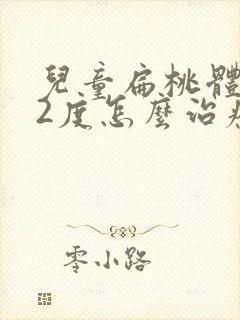 兒童扁桃體
2度怎麼治療
零小路